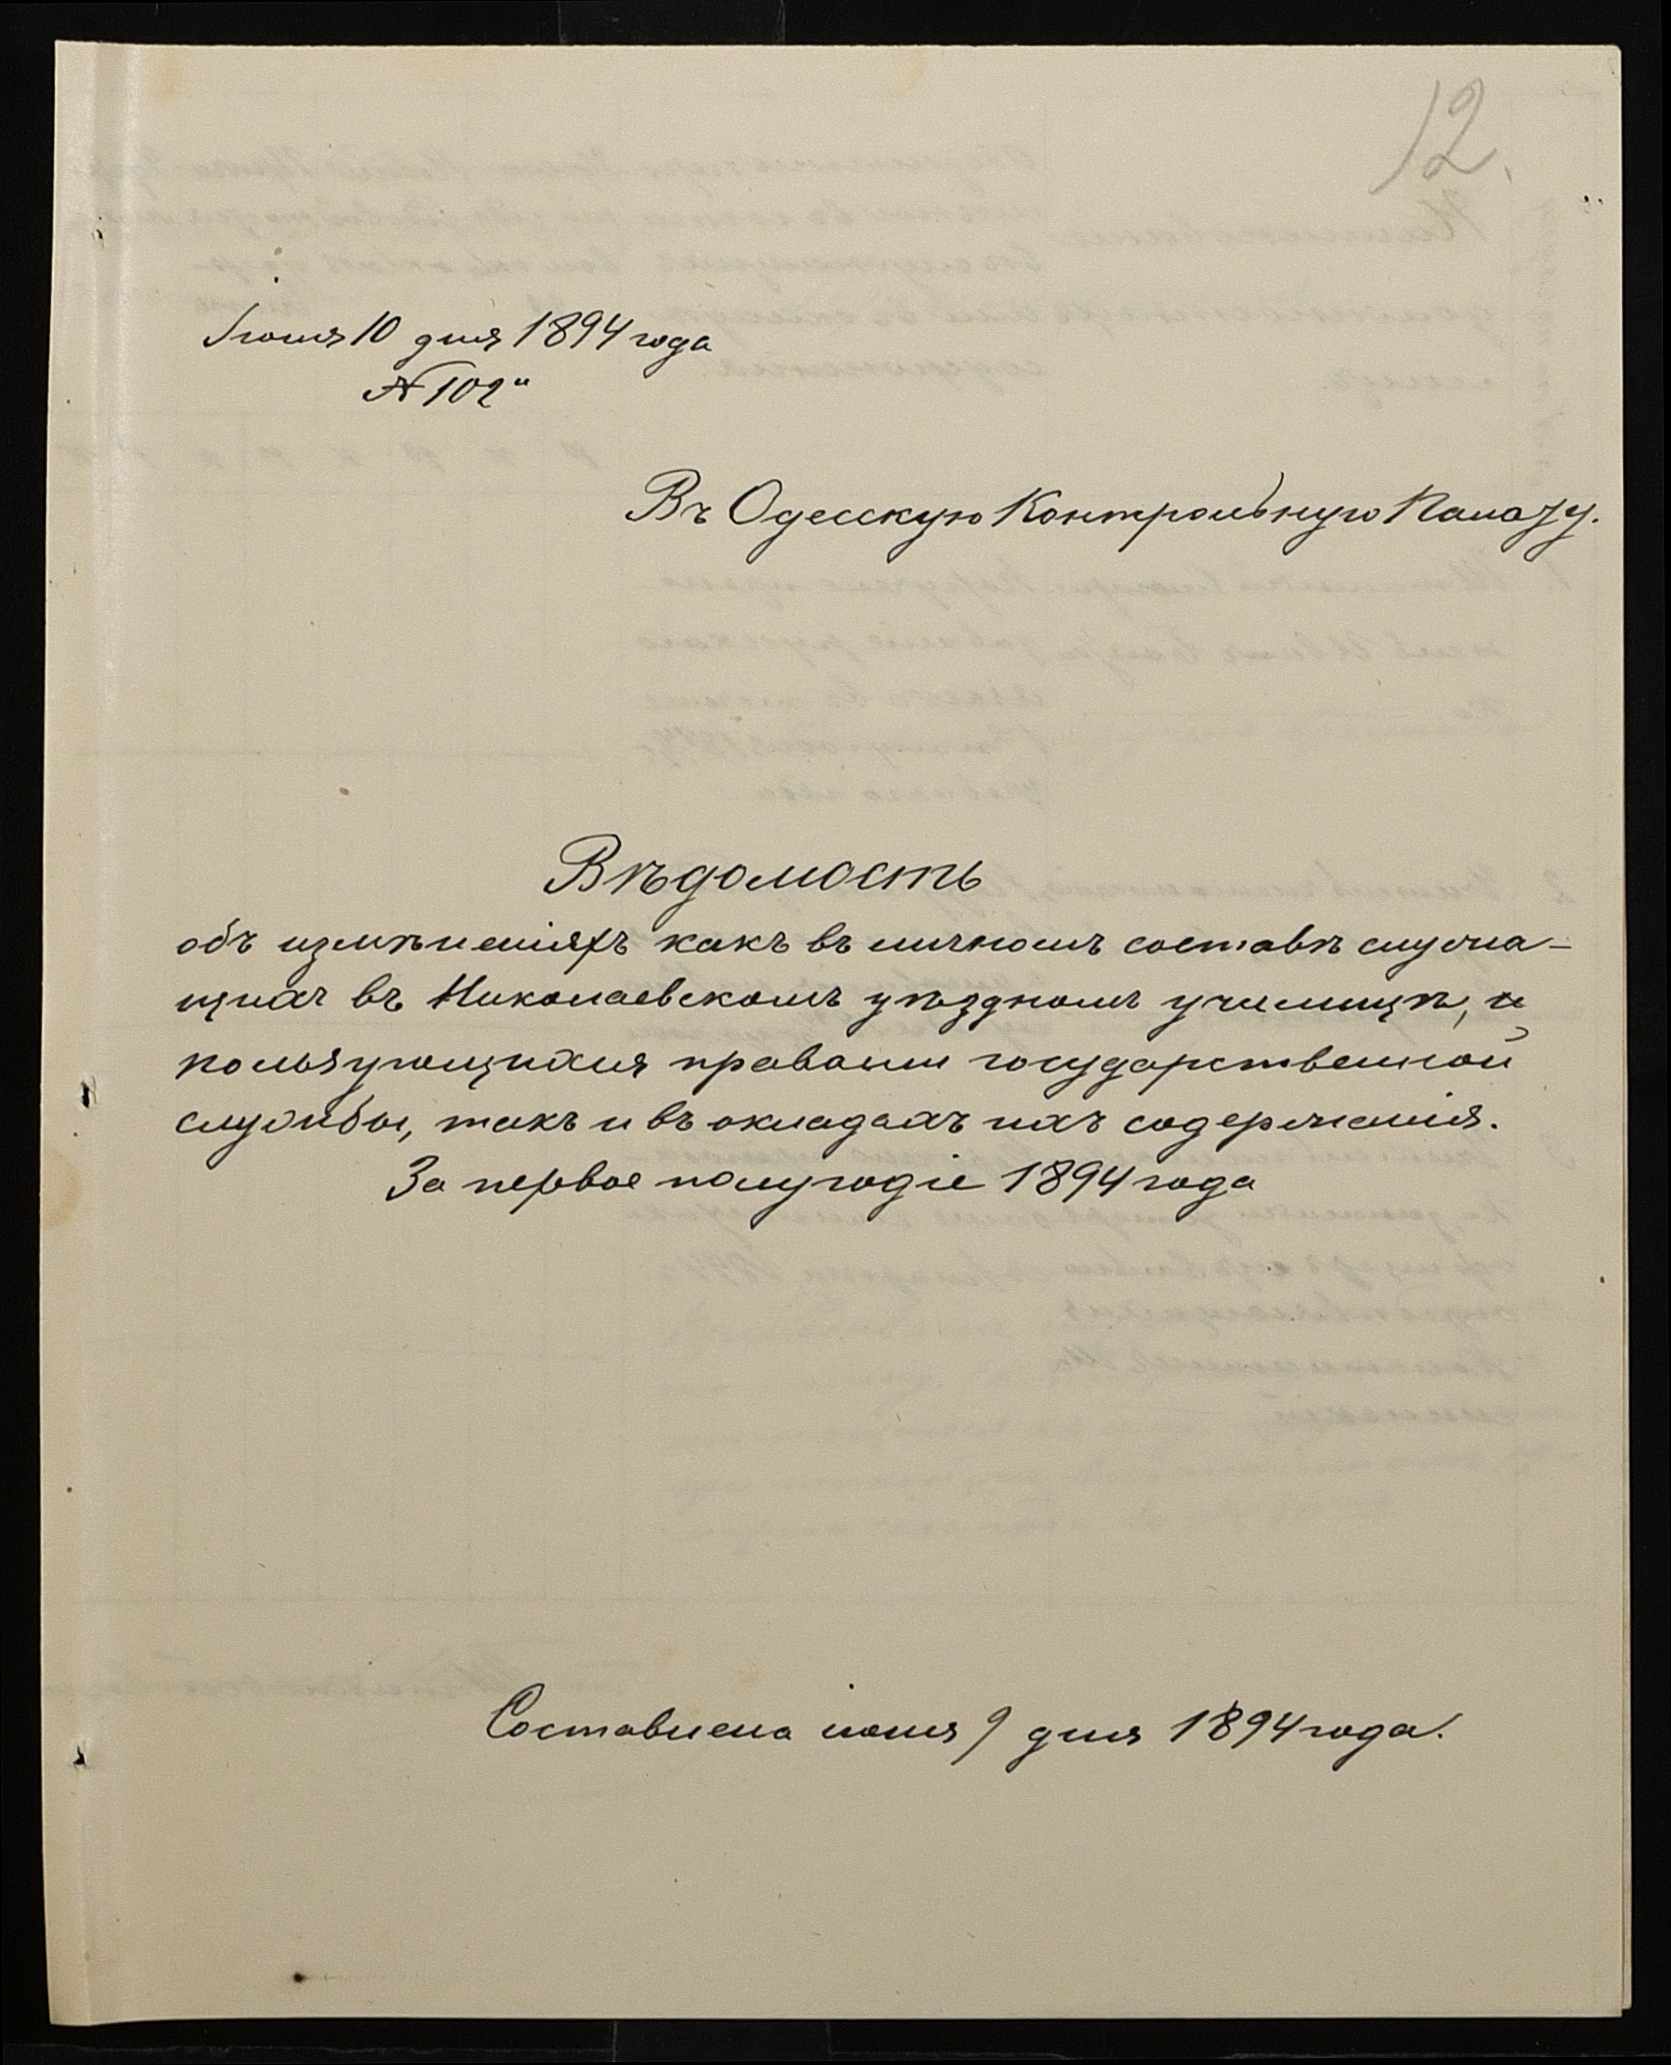 12.
Іюня 10 дня 1894 года
№ 102"
Въ Одесскую Контрольную Палату.
Вѣдомость
объ измѣненіяхъ какъ въ личномъ составѣ служа-
щихъ въ Николаевскомъ уѣздномъ училищѣ, и
пользующихся правами государственной
службы, такъ и въ окладахъ ихъ содержанія.
За первое полугодіе 1894 года
Составлена іюня 9 дня 1894 года.